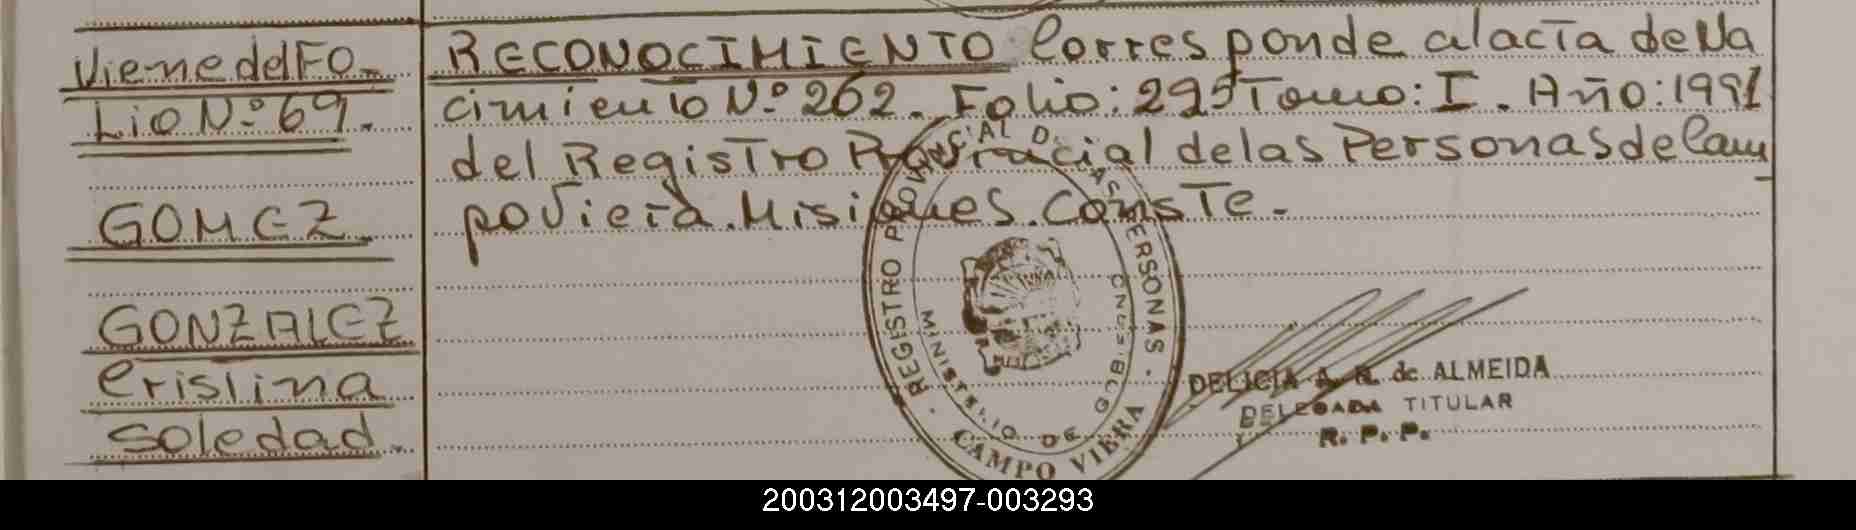 Viene del Fo-
lio Nº 69.
GOMEZ
GONZALEZ
Cristina
Soledad.
RECONOCIMIENTO Corresponde al acta de Na
cimiento Nº 262. Folio: 295 Tomo: I. Año: 1991
del Registro Provincial de las Personas de Cam
po Viera. Misiones. Conste.-
REGISTRO PROVINCIAL DE LAS PERSONAS
MINISTERIO DE GOBIERNO
CAMPO VIERA
DELICIA A. R. de ALMEIDA
DELEGADA TITULAR
R. P. P.
200312003497-003293